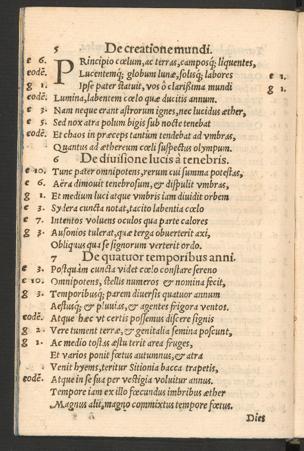 5 De creatione mundi.
e 6. PRincipio cœlum, ac terras, camposq; liquentes,
eodē. Lucentemq; globum lunæ, solisq; labores e 1.
g 1. Ipse pater statuit, vos ô clarissima mundi g 1.
eodē. Lumina, labentem cœlo quæ ducitis annum.
e 3. Nam neque erant astrorum ignes, nec lucidus æther,
e 5. Sed nox atra polum bigis subnocte tenebat
eodē. Et chaos in præceps tantum tendebat ad vmbras,
Quantus ad æthereum cœli suspectus olympum.
6 De diuisione lucis à tenebris.
e 10. Tunc pater omnipotens, rerum cui summa potestas,
e 6. Aëra dimouit tenebrosum, & dispulit vmbras,
g 1. Et medium luci atque vmbris iam diuidit orbem
e 3. Sydera cuncta notat, tacito labentia cœlo
e 7. Intentos voluens oculos qua parte calores
g 3. Ausonios tulerat, quæ terga obuerterit axi,
Obliquus qua se signorum verterit ordo.
7 De quatuor temporibus anni.
e 3. Postquàm cuncta videt cœlo constare sereno
e 10. Omnipotens, stellis numeros & nomina fecit,
g 3. Temporibusq; parem diuersis quatuor annum
Aestusq; & pluuias, & agentes frigora ventos.
eodē. Atque hæc vt certis possemus discere signis
g 2. Vere tument terræ, & genitalia semina poscunt,
g 1. Ac medio tostas æstu terit area fruges,
Et varios ponit fœtus autumnus, & atra
Venit hyems, teritur Sitionia bacca trapetis,
eodē. Atque in se sua per vestigia voluitur annus.
Tempore iam ex illo fœcundis imbribus æther
Magnus alit, magno commixtus tempore fœtus.
Dies